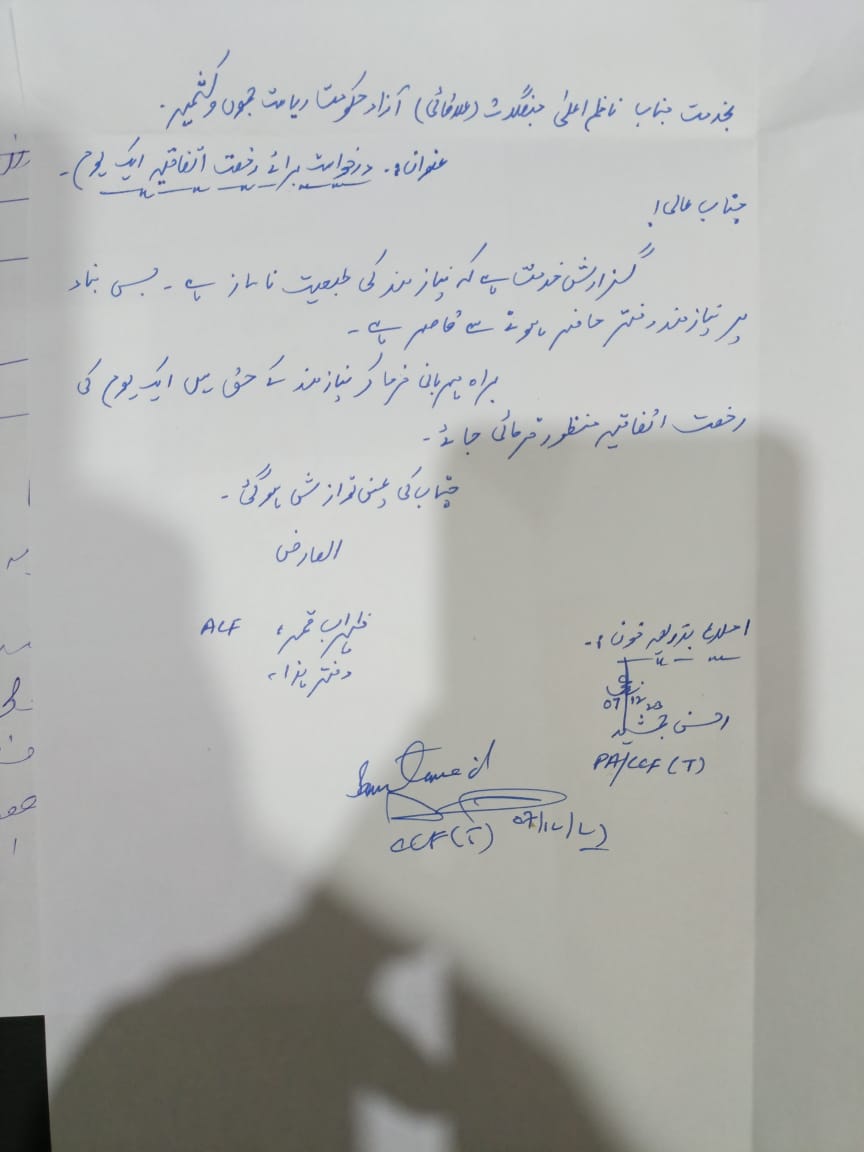 بخدمت جناب ناظم اعلیٰ جنگلات (علاقائی) آزاد حکومت ریاست جموں و کشمیر۔
عنوان:۔ درخواست برائے رخصت اتفاقیہ ایک یوم۔
جناب عالی!
گزارش خدمت ہے کہ نیازمند کی طبعیت ناساز ہے۔ جس بناء
پر نیازمند دفتر حاضر ہونے سے قاصر ہے۔
براہ مہربانی فرما کر نیازمند کے حق میں ایک یوم کی
رخصت اتفاقیہ منظور فرمائی جائے۔
جناب کی عین نوازش ہوگئی۔
العارض
قمر، ACF
دفتر ہذا،
اطلاع بذریعہ فون:۔
07/12/23
احسن جمشید
PA/CCF (T)
CCF (T) 07/12/23